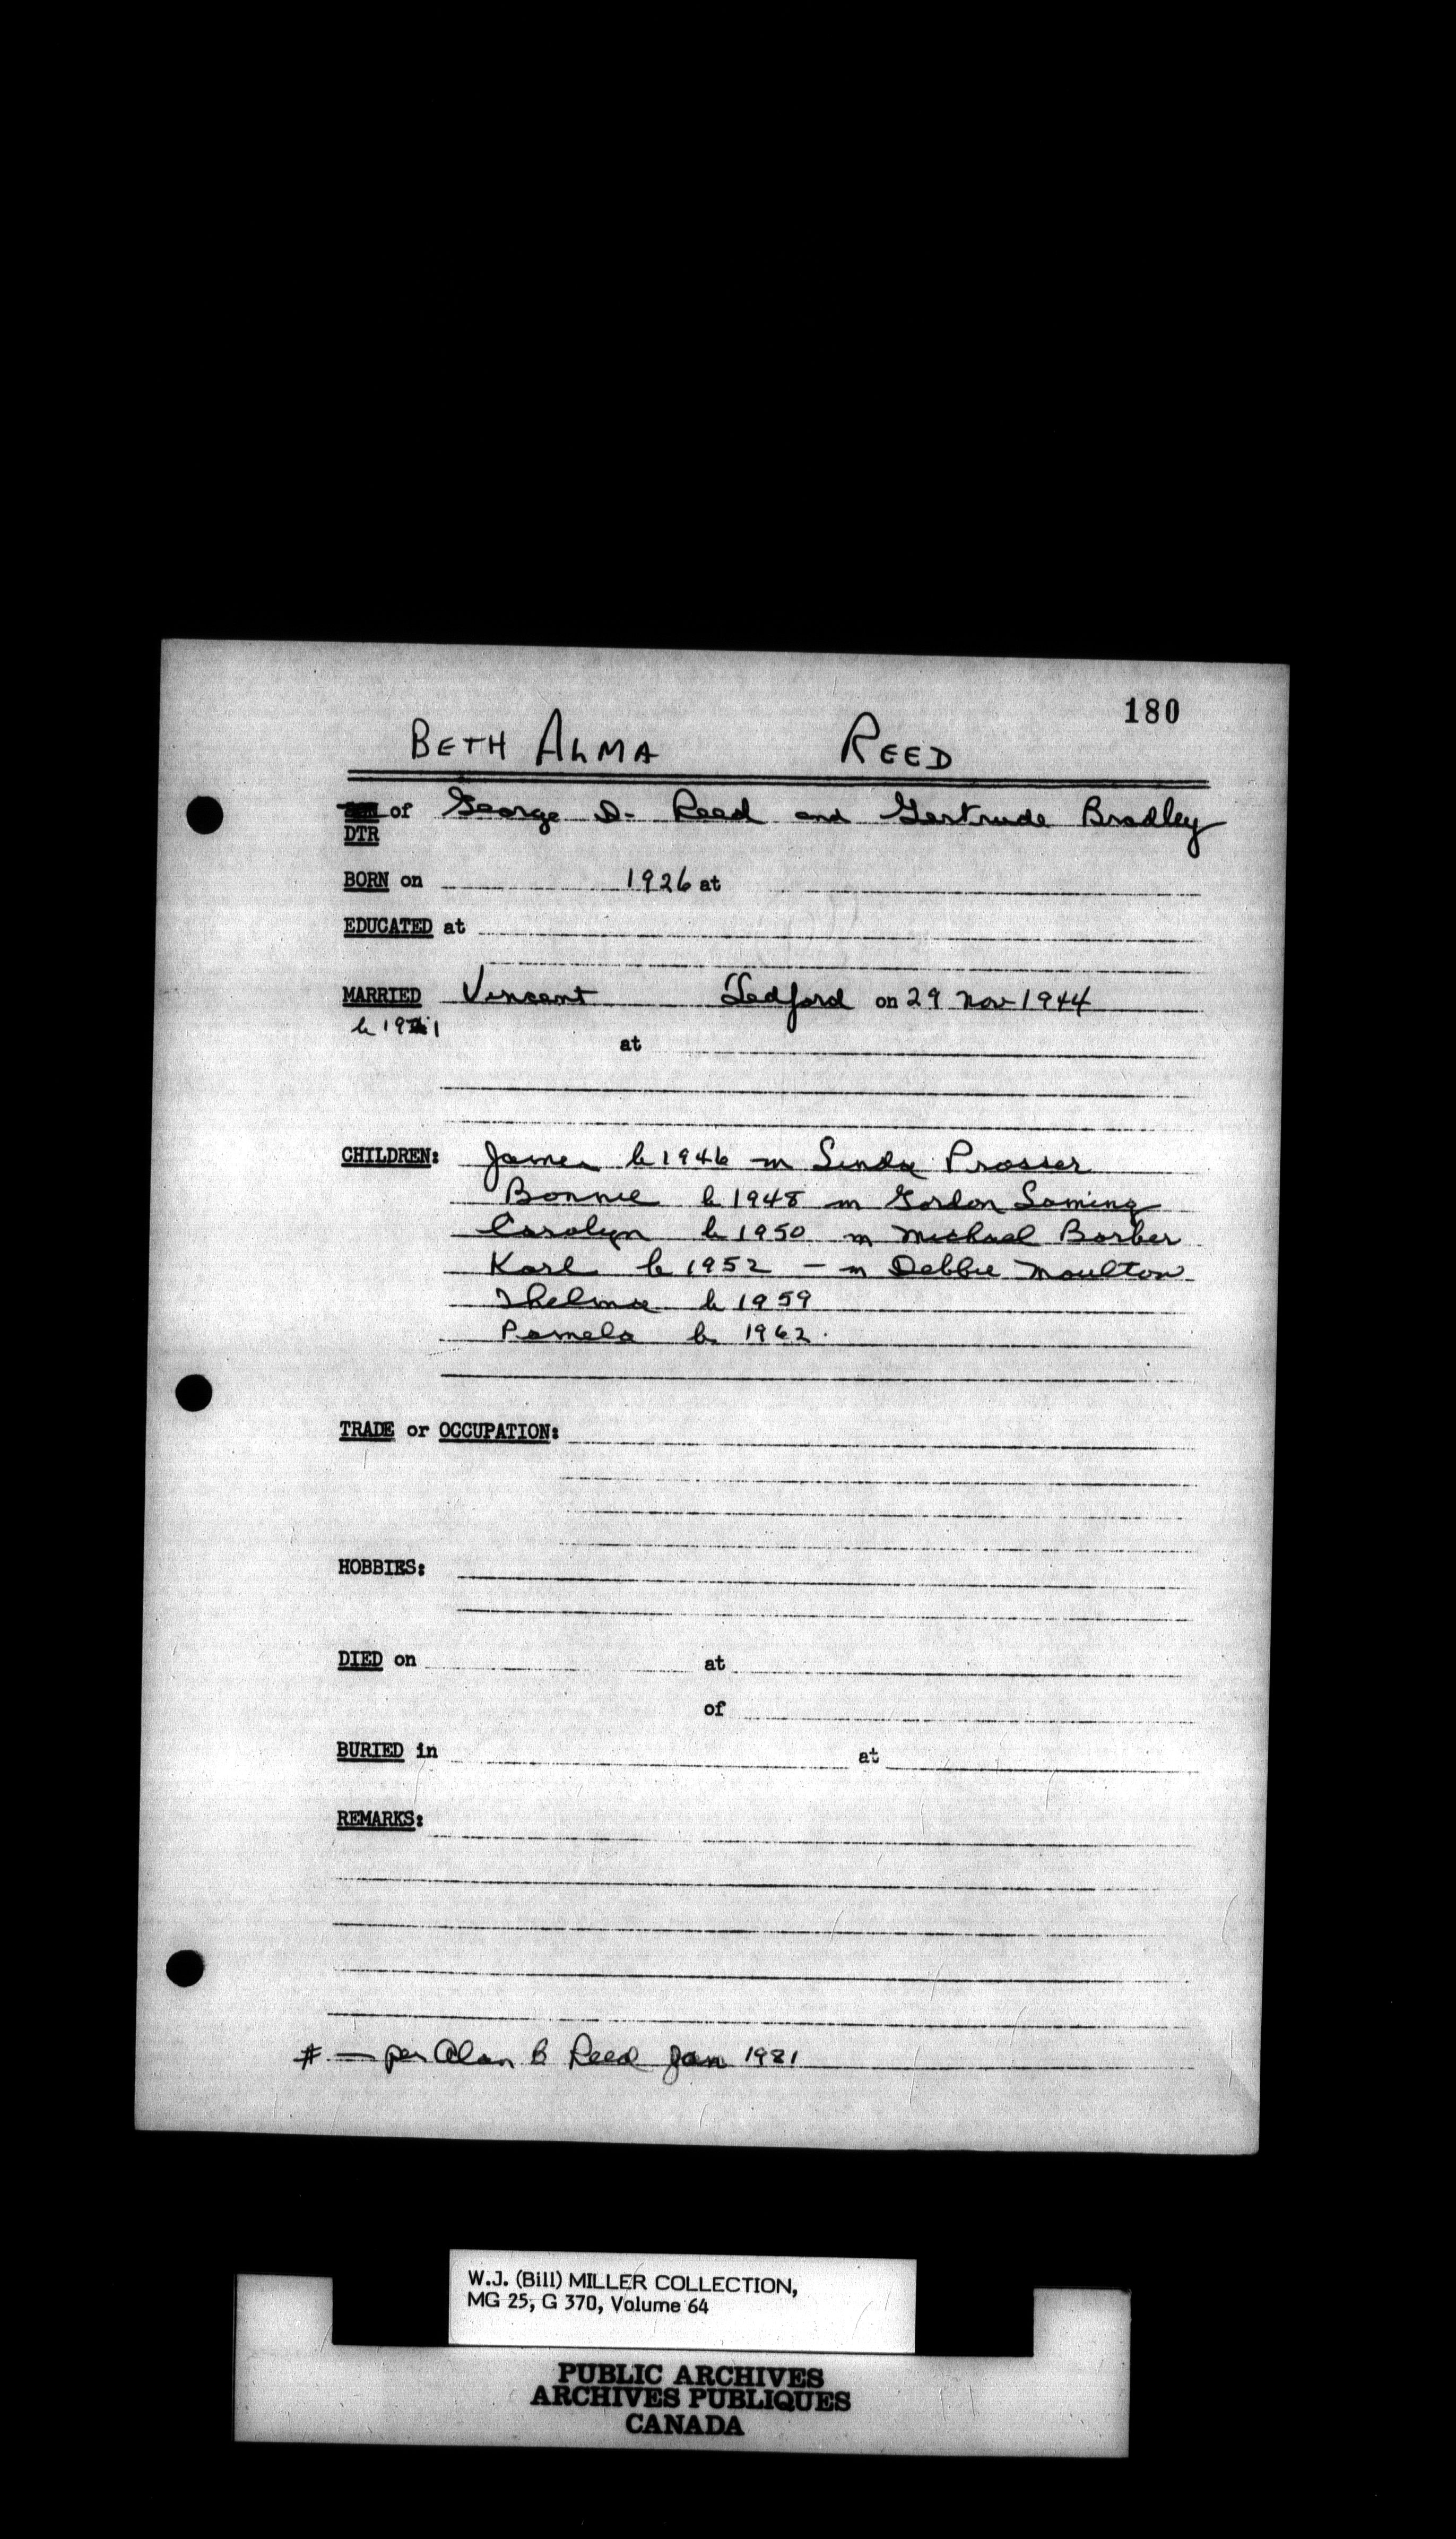 180
BETH ALMA REED
of George D. Reed and Gertrude Bradley
DTR
BORN on 1926 at
EDUCATED at
MARRIED Vincent Tedford on 29 Nov 1944
b 1921
at
CHILDREN: James b 1946 m Linda Prosser
Bonnie b 1948 m Gordon Laming
Carolyn b 1950 m Michael Barber
Karl b 1952 - m Debbie Moulton
Thelma b 1959
Pamela b. 1962.
TRADE or OCCUPATION:
HOBBIES:
DIED on at
of
BURIED in at
REMARKS:
# — per Alan B Reed Jan 1981
W.J. (Bill) MILLER COLLECTION,
MG 25, G 370, Volume 64
PUBLIC ARCHIVES
ARCHIVES PUBLIQUES
CANADA